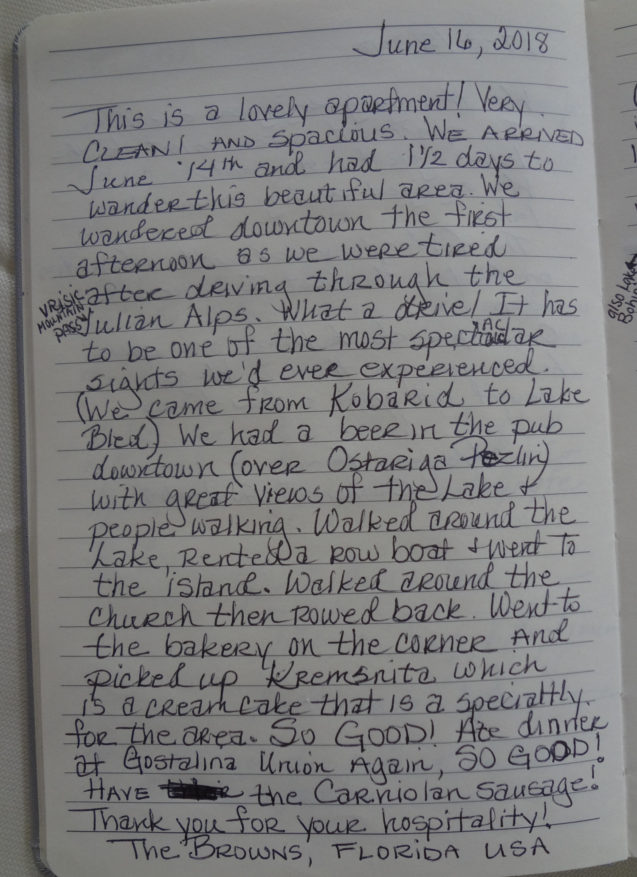 June 16, 2018
This is a lovely apartment! Very
CLEAN! AND spacious. WE ARRIVED
June '14th and had 1 1/2 days to
wander this beautiful area. We
wandered downtown the first
afternoon as we were tired
after driving through the
VRSIC
MOUNTAIN
PASS
Julian Alps. What a drive! It has
to be one of the most spectacular
sights we'd ever experienced.
(We came from Kobarid to Lake
Bled) We had a beer in the pub
downtown (over Ostariga Pezlin)
with great views of the Lake &
people walking. Walked around the
Lake, Rented a row boat & went to
the island. Walked around the
church then rowed back. Went to
the bakery on the corner And
picked up Kremsnita which
is a cream cake that is a specialtly
for the area. So GOOD! Ate dinner
at Gostalina Union Again, SO GOOD!
HAVE the Carniolan Sausage!
Thank you for your hospitality!
THE BROWNS, FLORIDA USA
also Lake